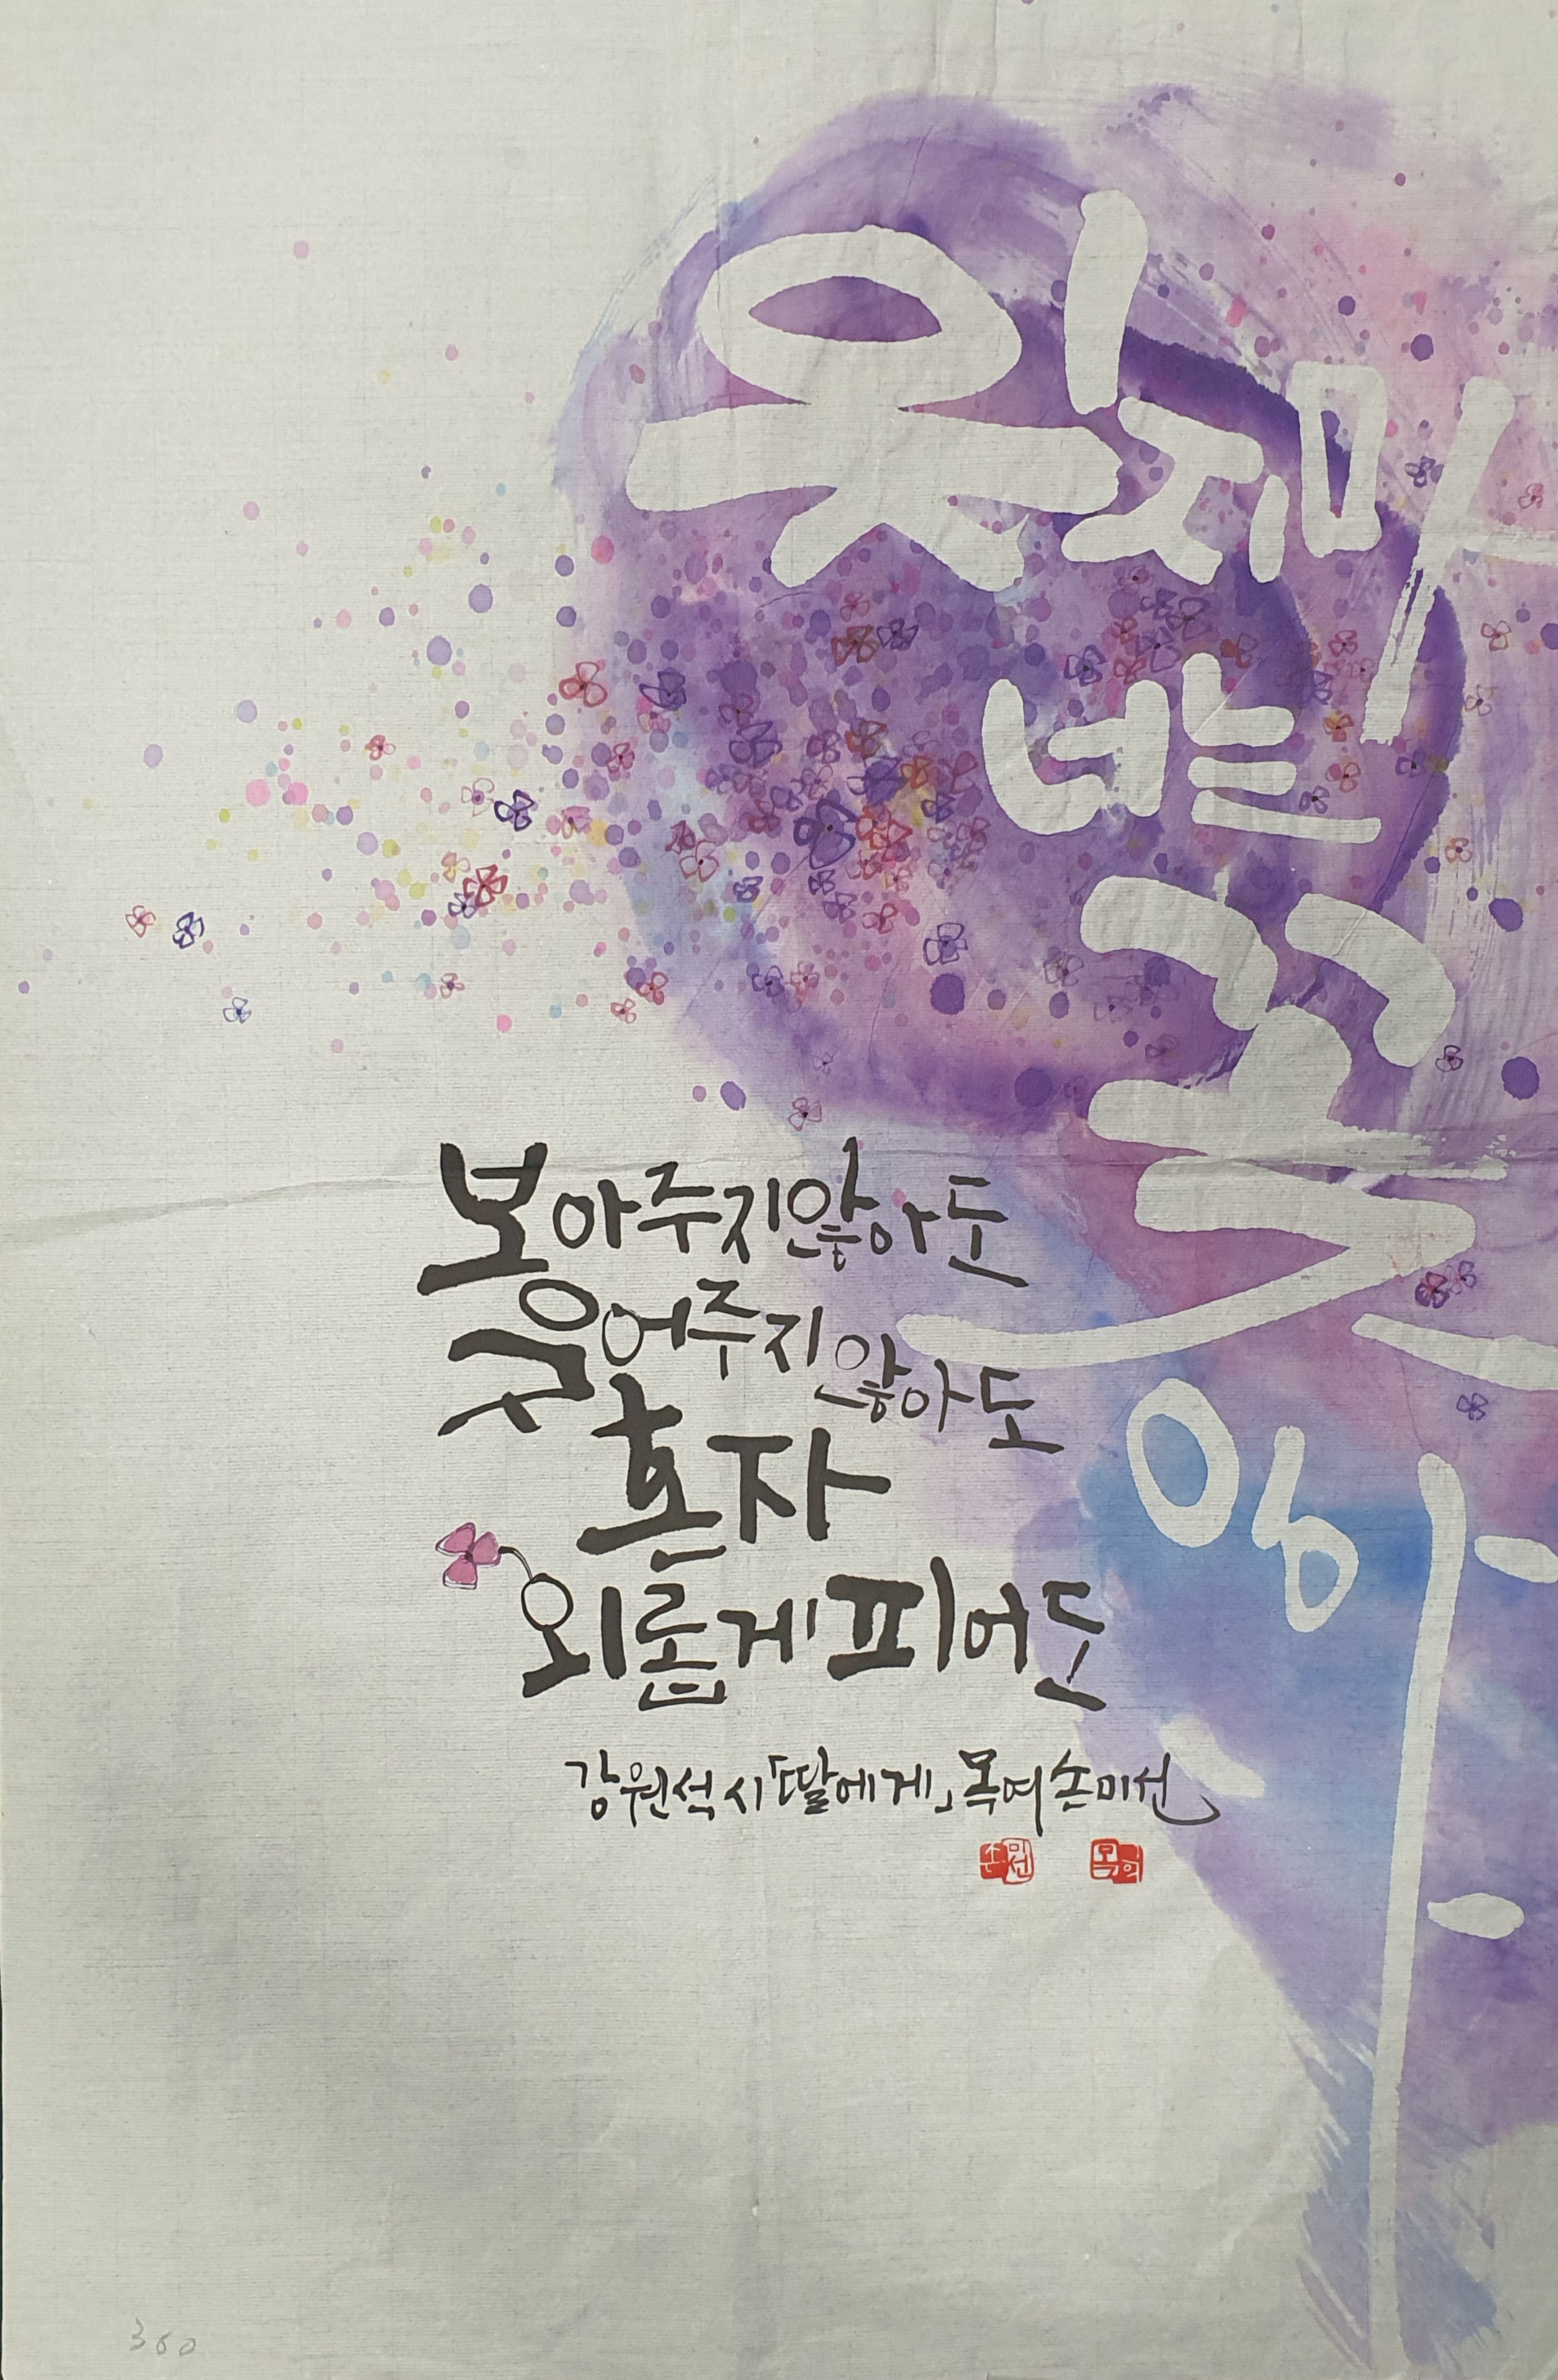 잊지마
너는
꽃
이야
보아주지않아도
웃어주지않아도
혼자
외롭게피어도
강원석 시「딸에게」목여 손미선
손미선
360